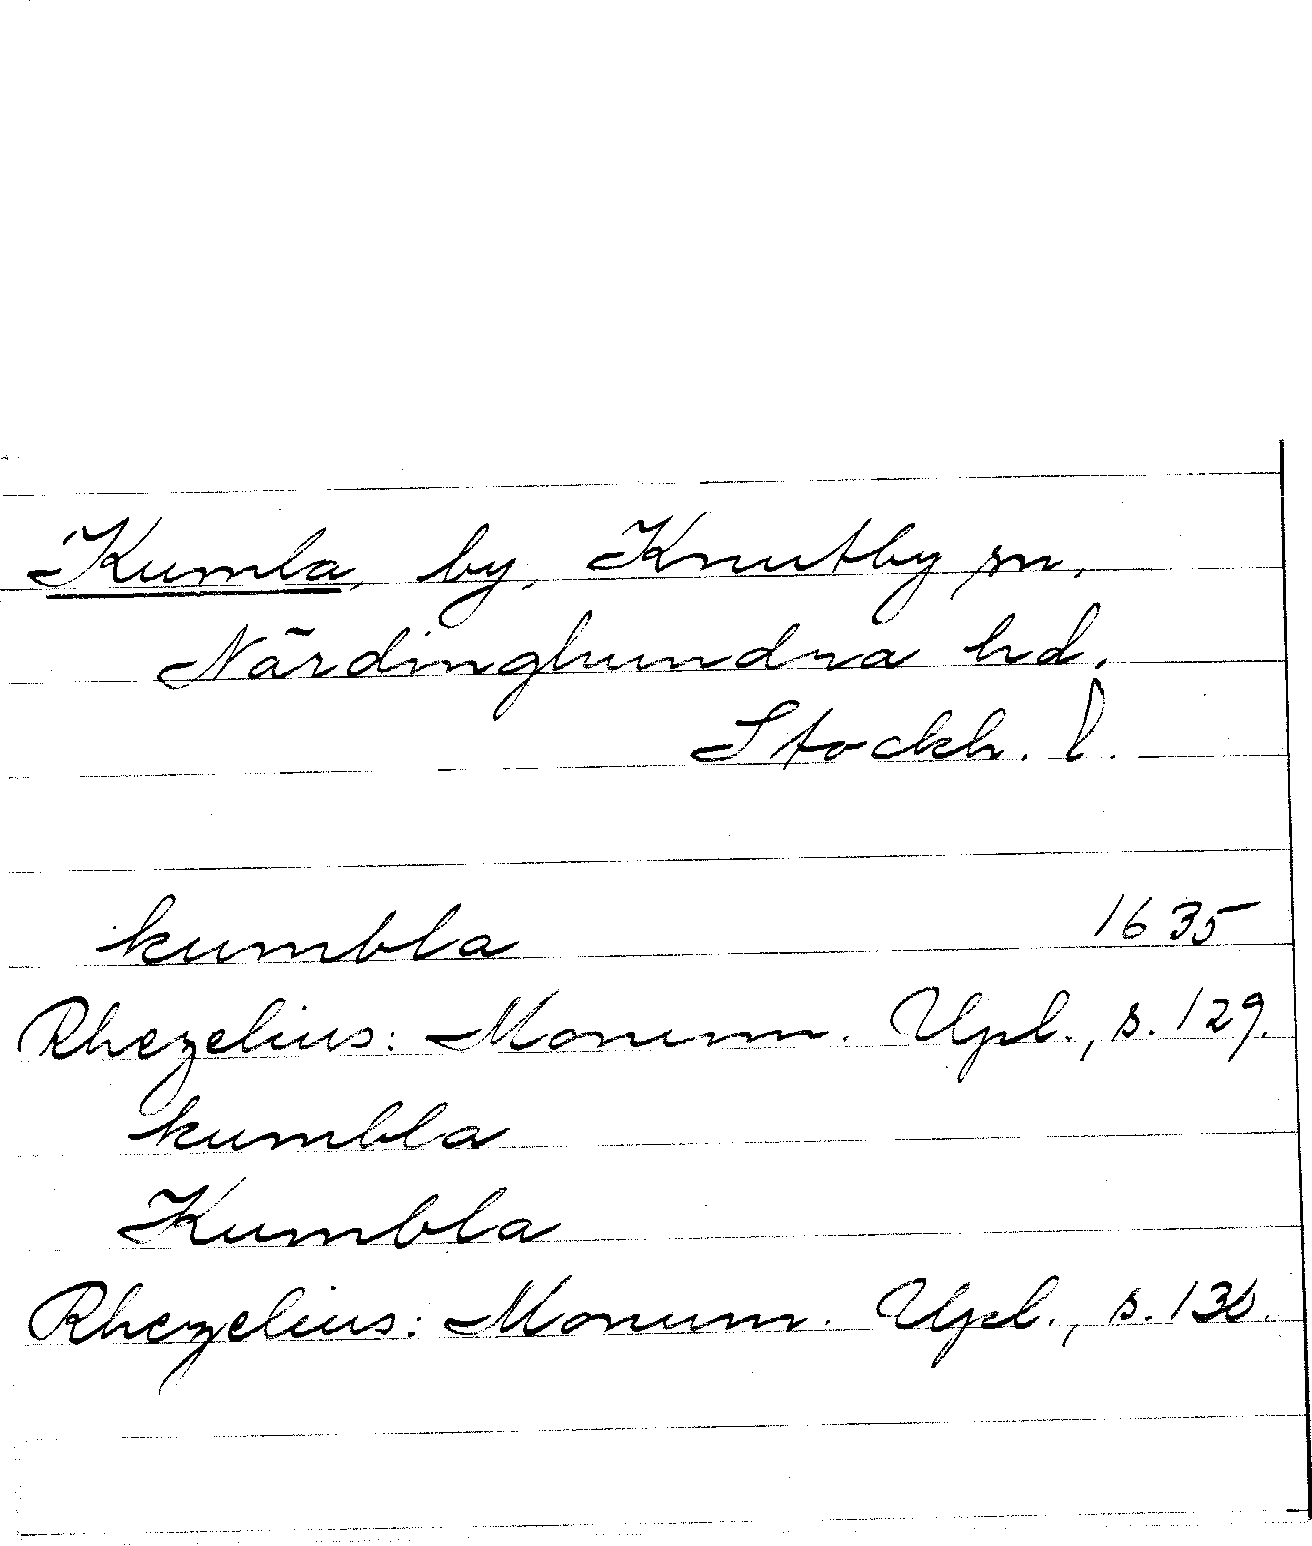 Kumla, by, Knutby sn,
Närdinghundra hd.
Stockh. l.
kumbla 1635
Rhezelius: Monum. Upl., s. 129.
kumbla
Kumbla
Rhezelius: Monum. Upl., s.